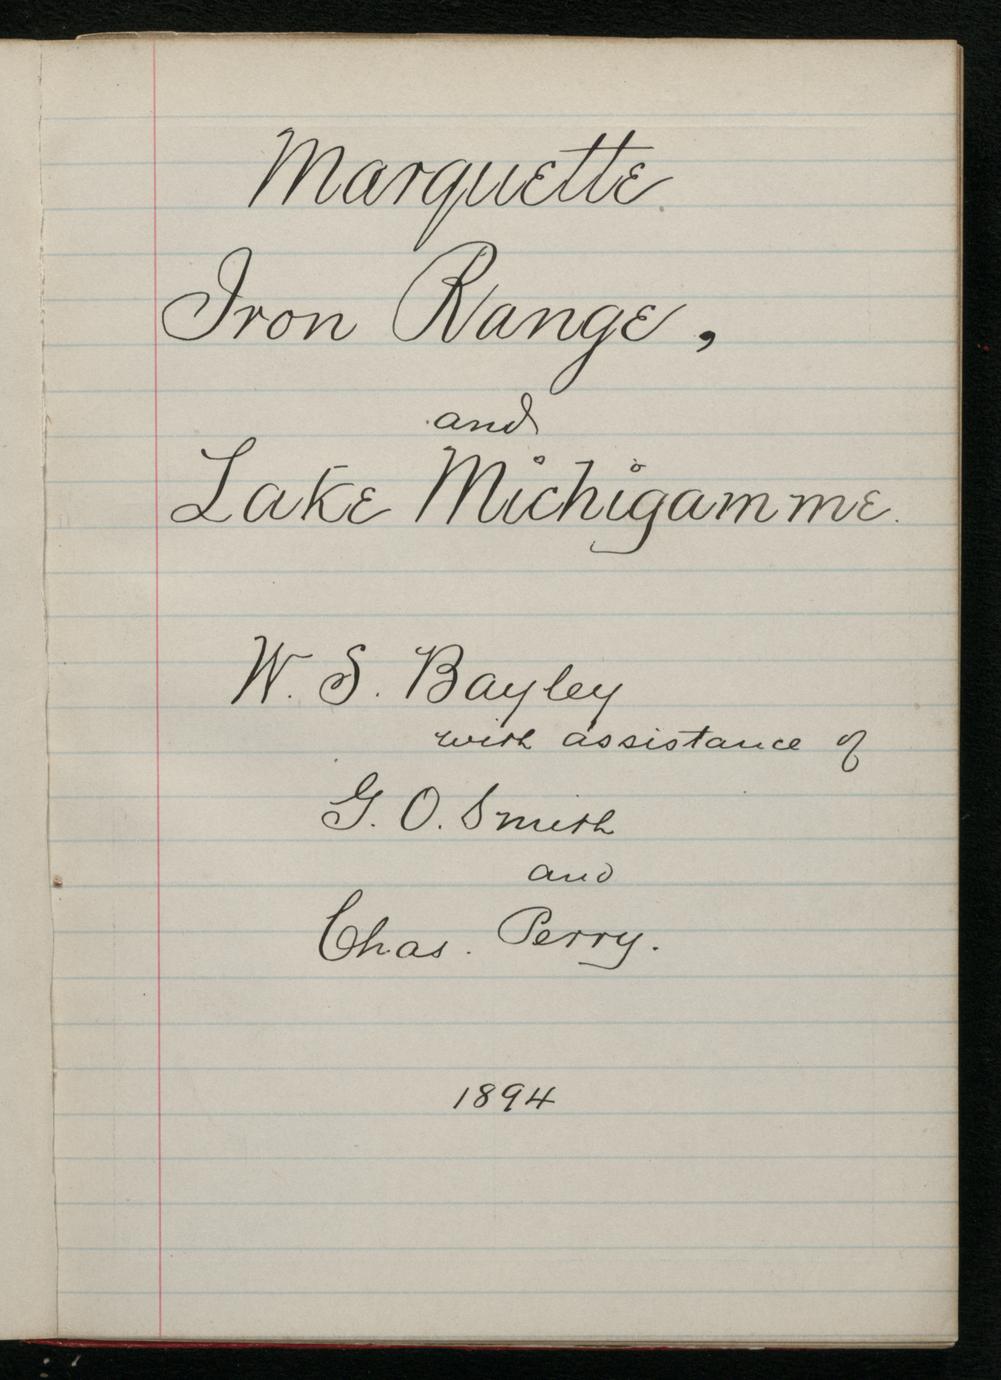 Marquette
Iron Range,
and
Lake Michigamme.
W. S. Bayley
with assistance of
G. O. Smith
and
Chas. Perry.
1894